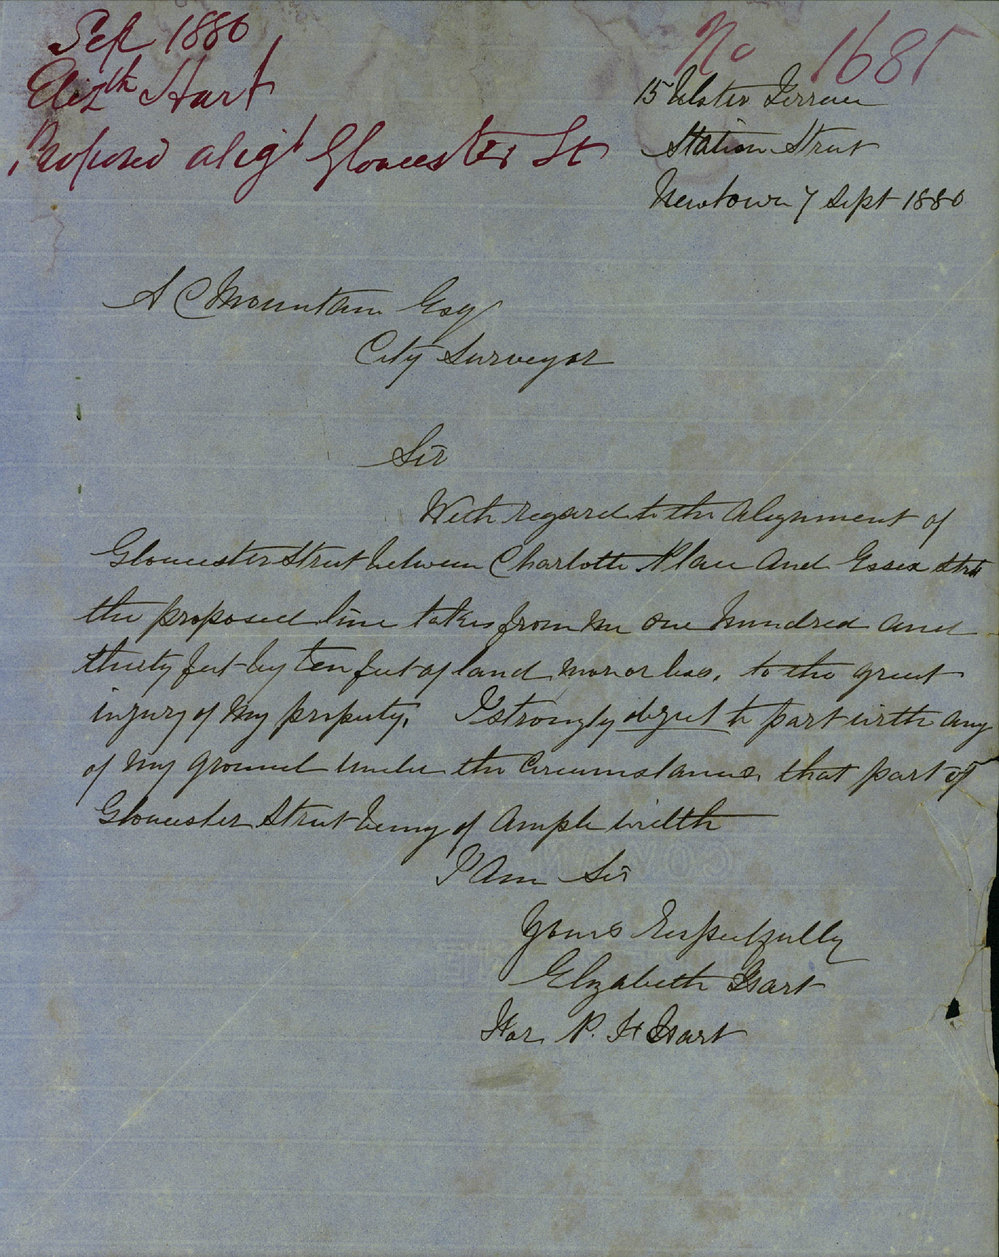 Sept 1880
Elizth Hart
Proposed alignt Gloucester St
No 1685
15 Ulster Terrace
Station Street
Newtown 7 Sept 1880
A C Mountain Esq
City Surveyor
Sir
With regard to the Alignment of
Gloucester Street between Charlotte Place and Essex Strt
the proposed line takes from me one Hundred and
thirty feet by ten feet of land mor or less, to the great
injury of my property. I strongly object to part with any
of my ground under the circumstances that part of
Gloucester Street being of ample width
I Am Sir
Yours Respectfully
Elizabeth Hart
For P. H Hart